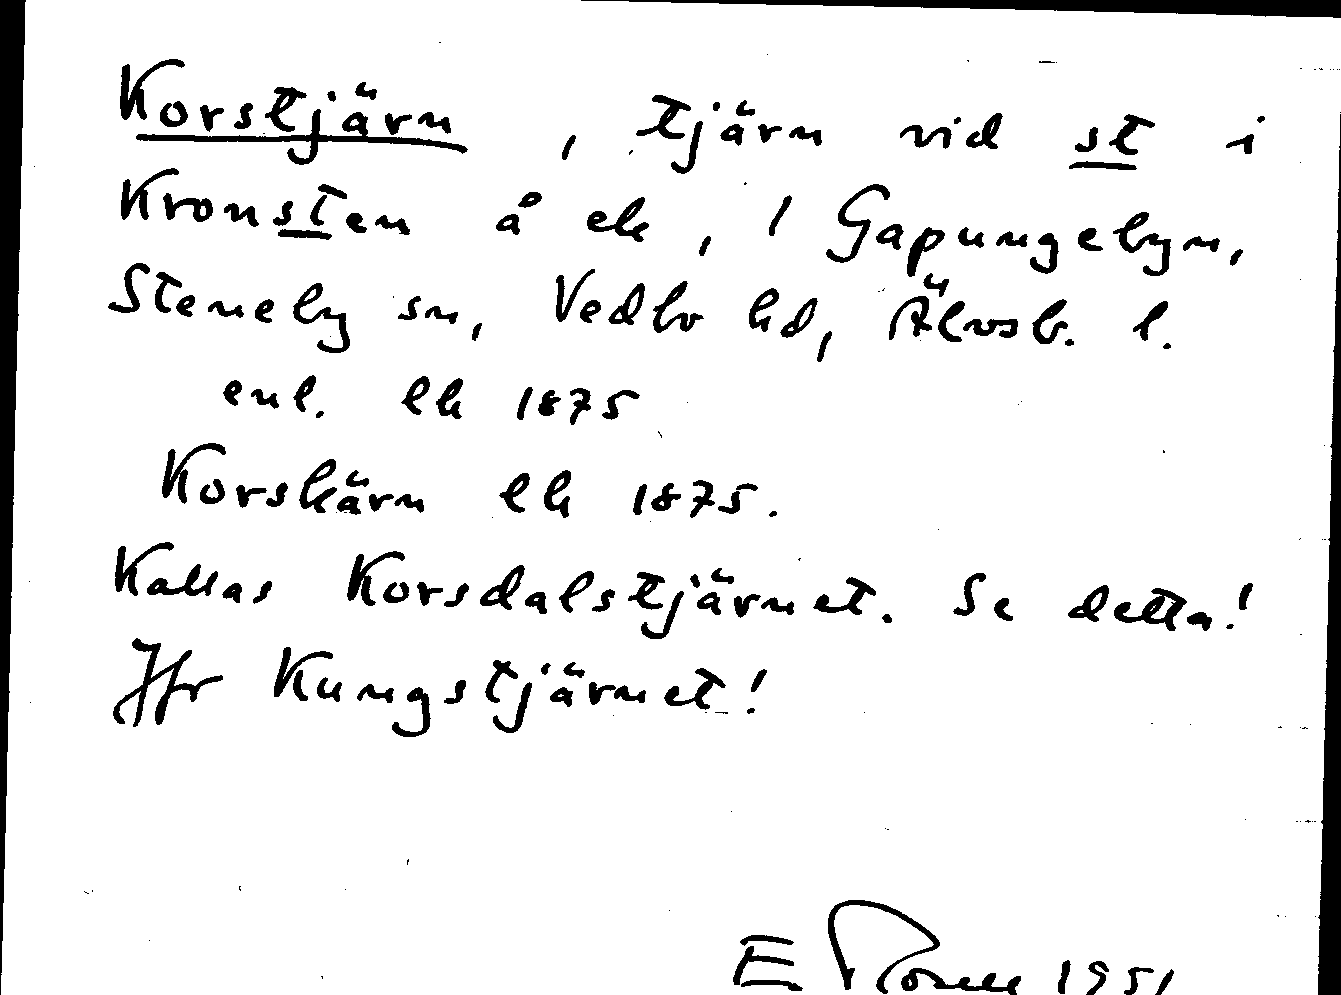 Korstjärn, tjärn vid st i
Kronsten å ek, 1 Gapungebyn,
Steneby sn, Vedbo hd, Älvsb. l.
enl. ek 1875
Korskärn ek 1875.
Kallas Korsdalstjärnet. Se detta!
Jfr Kungstjärnet!
E 1951